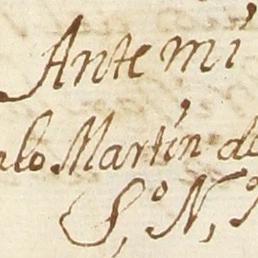 Ante mi
alo Martin de
S.º N,º